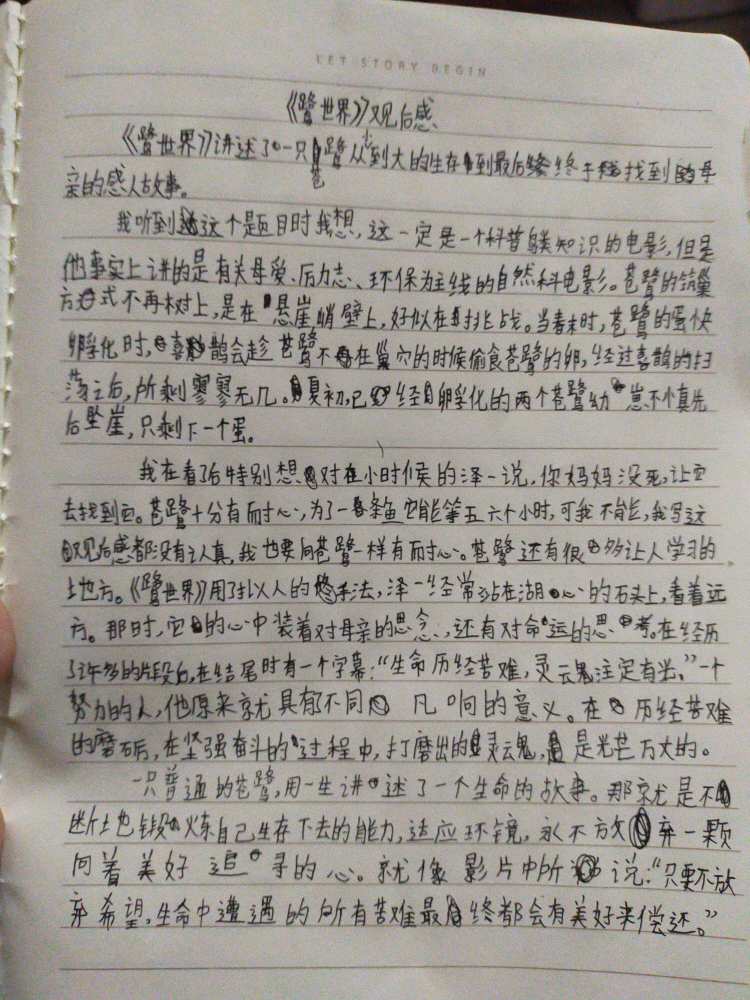 LET STORY BEGIN
《鹭世界》观后感
《鹭世界》讲述了一只苍鹭从小到大的生存到最后终于找到母
亲的感人故事。
我听到这个题目时我想,这一定是一个科普鸟类知识的电影,但是
他事实上讲的是有关母爱、励志、环保为主线的自然科电影。苍鹭的筑巢
方式不再树上,是在悬崖峭壁上,好似在挑战。当春末时,苍鹭的蛋快
孵化时,喜鹊会趁苍鹭不在巢穴的时候偷食苍鹭的卵,经过喜鹊的扫
荡之后,所剩寥寥无几。夏初,已经孵化的两个苍鹭幼崽不小真先
后坠崖,只剩下一个蛋。
我在看了后特别想对在小时候的泽一说,你妈妈没死,让它
去找到它。苍鹭十分有耐心,为了一条鱼它能等五六个小时,可我不能,我写这
观后感都没有认真,我也要向苍鹭一样有耐心。苍鹭还有很多让人学习的
地方。《鹭世界》用了拟人的手法,泽一经常站在湖心的石头上,看着远
方。那时,它的心中装着对母亲的思念,还有对命运的思考。在经历
了许多的片段后,在结尾时有一个字幕:“生命历经苦难,灵魂注定有光。”一个
努力的人,他原来就具有不同凡响的意义。在历经苦难
的磨砺后,在坚强奋斗的过程中,打磨出的灵魂,是光芒万丈的。
一只普通的苍鹭,用一生讲述了一个生命的故事。那就是不
断地锻炼自己生存下去的能力,适应环镜,永不放弃一颗
向着美好追寻的心。就像影片中所说:“只要不放
弃希望,生命中遭遇的所有苦难最终都会有美好来偿还。”